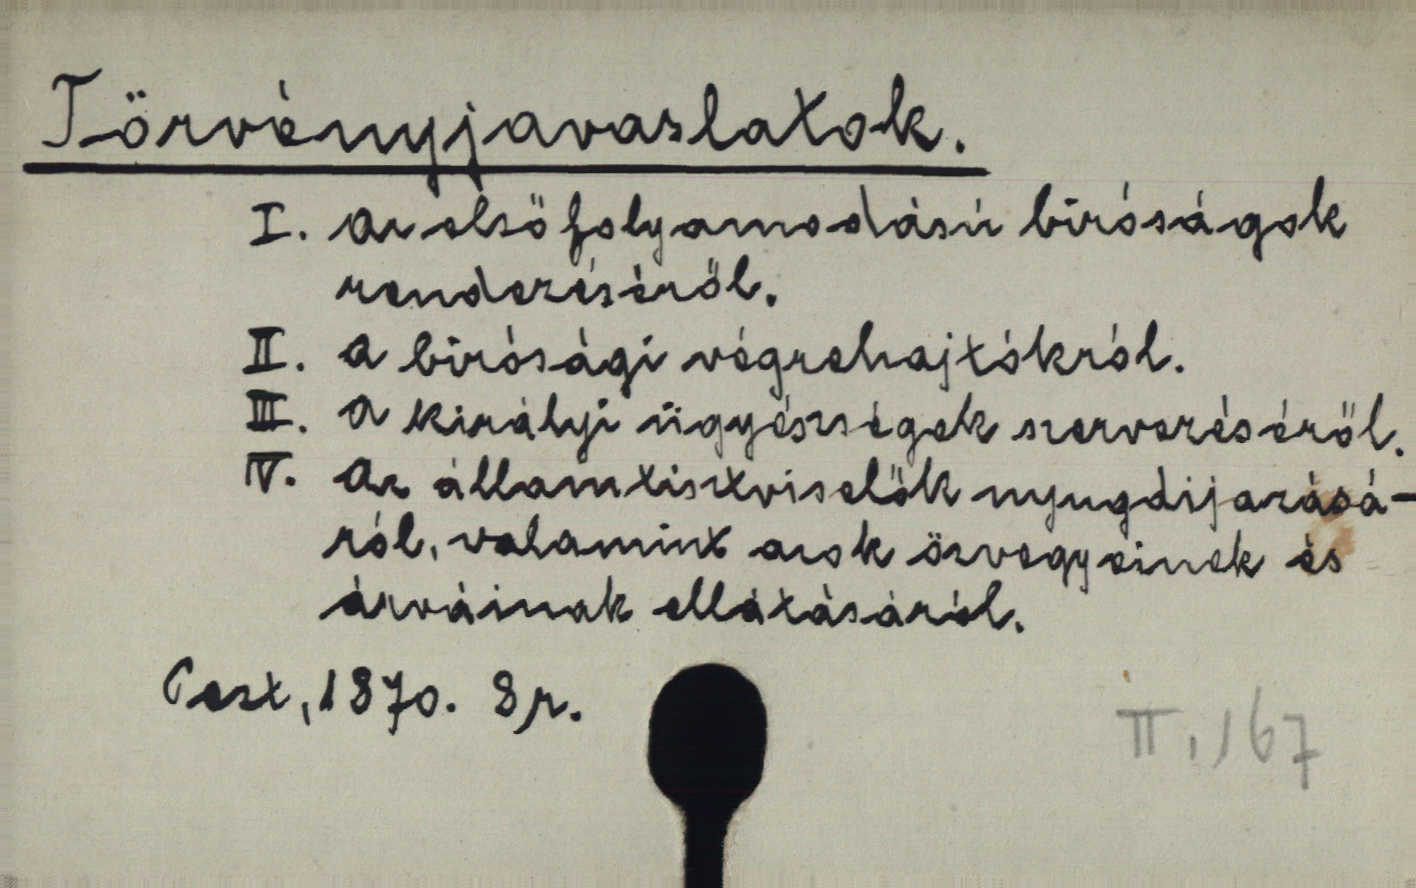 Törvényjavaslatok.
I. Az elsőfolyamodású biróságok
rendezéséről.
II. A birósági végrehajtókról.
III. A királyi ügyészségek szervezéséről.
IV. Az államtisztviselők nyugdijazásá-
ról, valamint azok özvegyeinek és
árváinak ellátásáról.
Pest, 1870. 8r.
II, 167